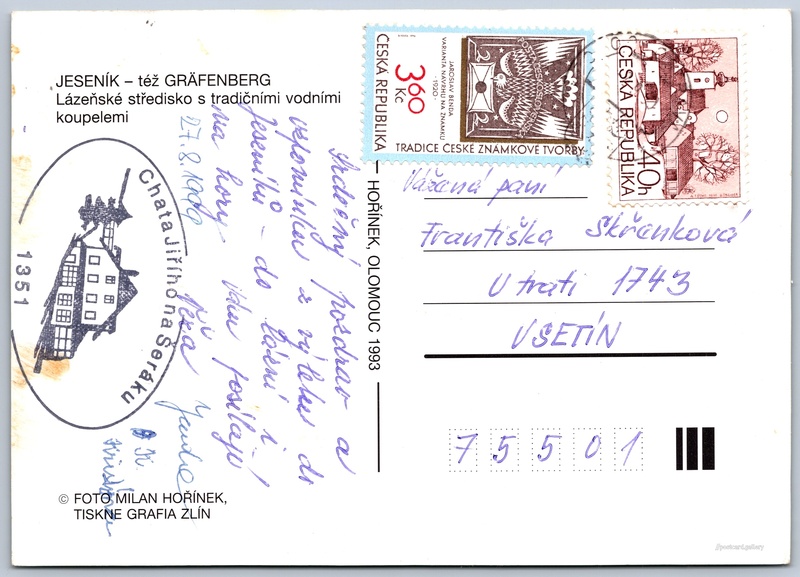 JESENÍK – též GRÄFENBERG
Lázeňské středisko s tradičními vodními
koupelemi
27. 8. 1999
Srdečný pozdrav a
vzpomínku z výletu do
Jeseníků – do lázní i
na hory Vám posílají
Chata Jiřího na Šeráku
1351
© FOTO MILAN HOŘÍNEK,
TISKNE GRAFIA ZLÍN
HOŘÍNEK, OLOMOUC 1993
ČESKÁ REPUBLIKA
3,60
Kč
JAROSLAV BENDA
VARIANTA NÁVRHU NA ZNÁMKU
· 1920 ·
TRADICE ČESKÉ ZNÁMKOVÉ TVORBY
ČESKÁ REPUBLIKA
40h
Vážená paní
Františka Skřenková
U trati 1743
VSETÍN
75501
jlpostcard.gallery